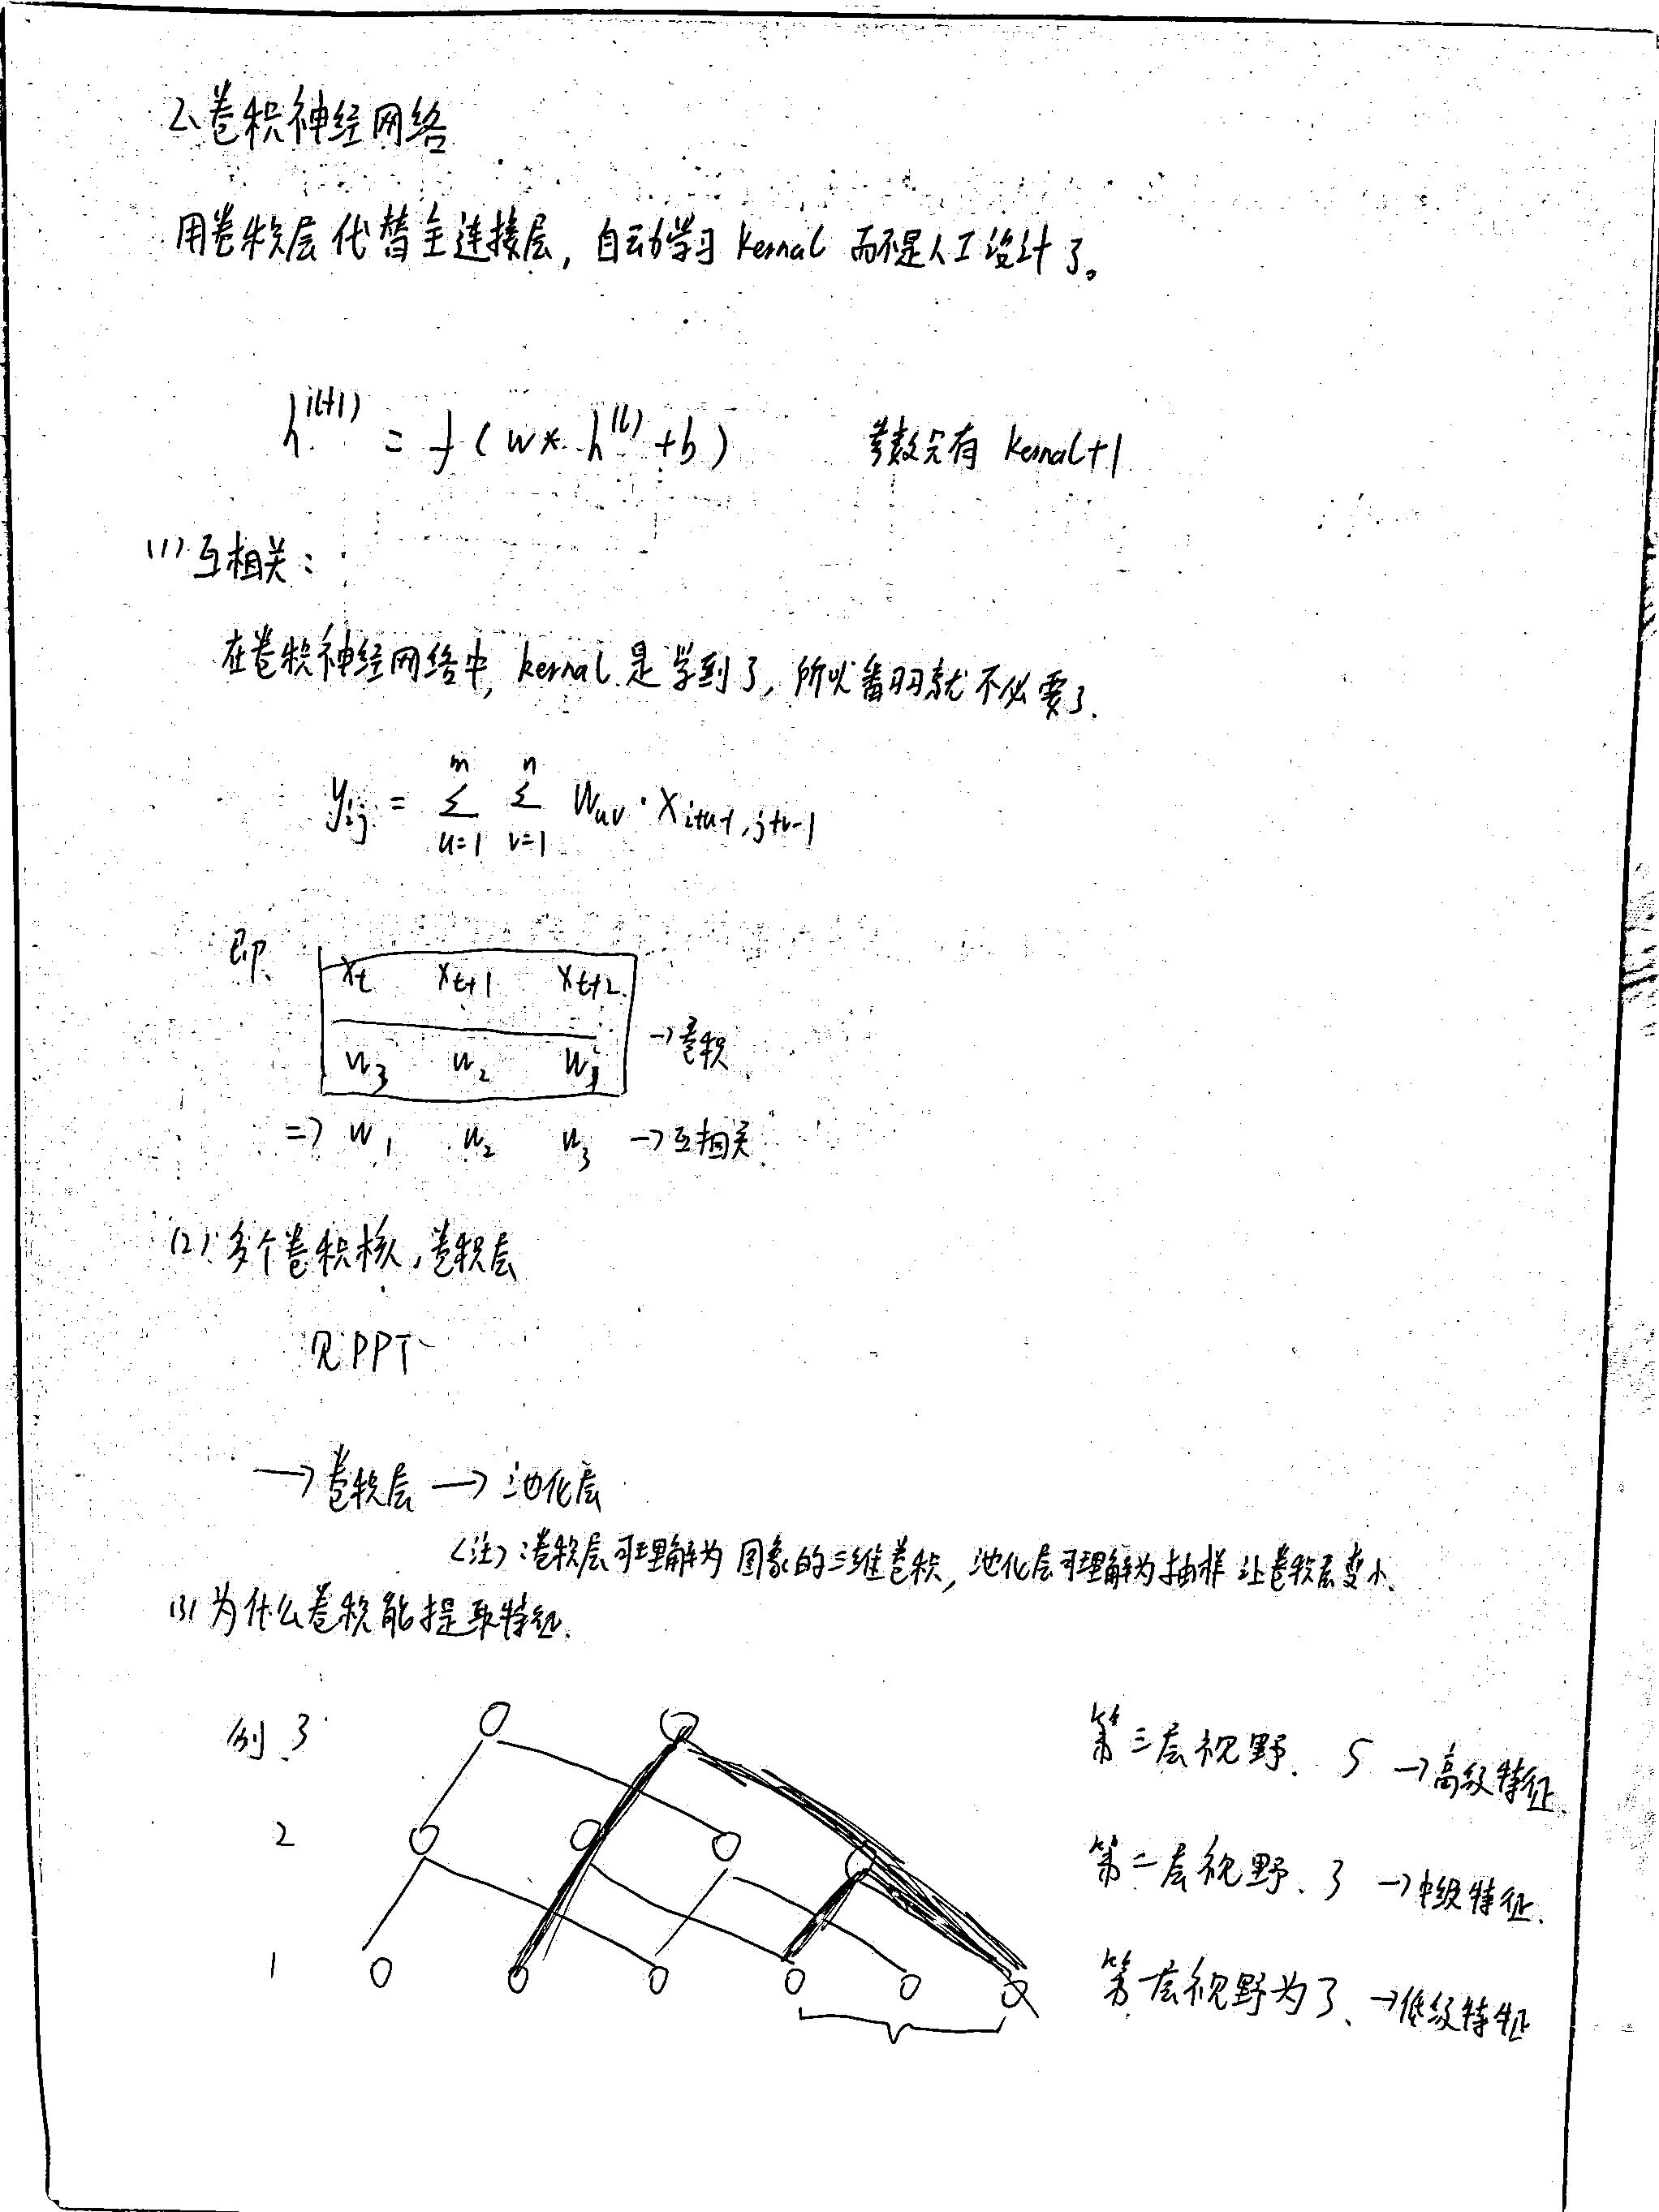 2、卷积神经网络
用卷积层代替全连接层，自动学习 kernal 而不是人工设计了。
h^(l+1) = f(w * h^(l) + b) 参数只有 kernal+1
(1) 互相关：
在卷积神经网络中，kernal 是学到了，所以翻就不必要了.
y_ij = Σ_{u=1}^{m} Σ_{v=1}^{n} W_uv · X_{i+u-1, j+v-1}
即、
x_t x_{t+1} x_{t+2}
w_3 w_2 w_1 →卷积
=> w_1 w_2 w_3 →互相关
(2) 多个卷积核，卷积层
见PPT
→ 卷积层 → 池化层
(注)：卷积层可理解为图象的三维卷积，池化层可理解为抽样 让卷积层变小.
(3) 为什么卷积能提取特征.
例 3 第三层视野. 5 →高级特征.
2 第二层视野、3 →中级特征.
1 第一层视野为3、→低级特征